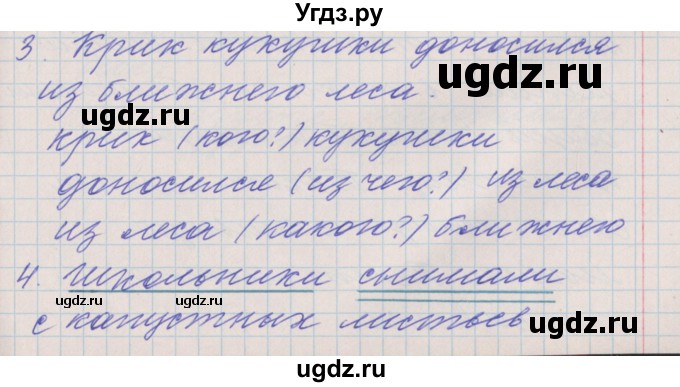 Угдз.ру
3. Крик кукушки доносился
ugdz.ru
из ближнего леса.
ugdz.ru
крик (кого?) кукушки
доносился (из чего?) из леса
ugdz.ru
из леса (какого?) ближнего
4. Школьники снимали
ugdz.ru
ugdz.ru
с капустных листьев
ugdz.ru
ugdz.ru